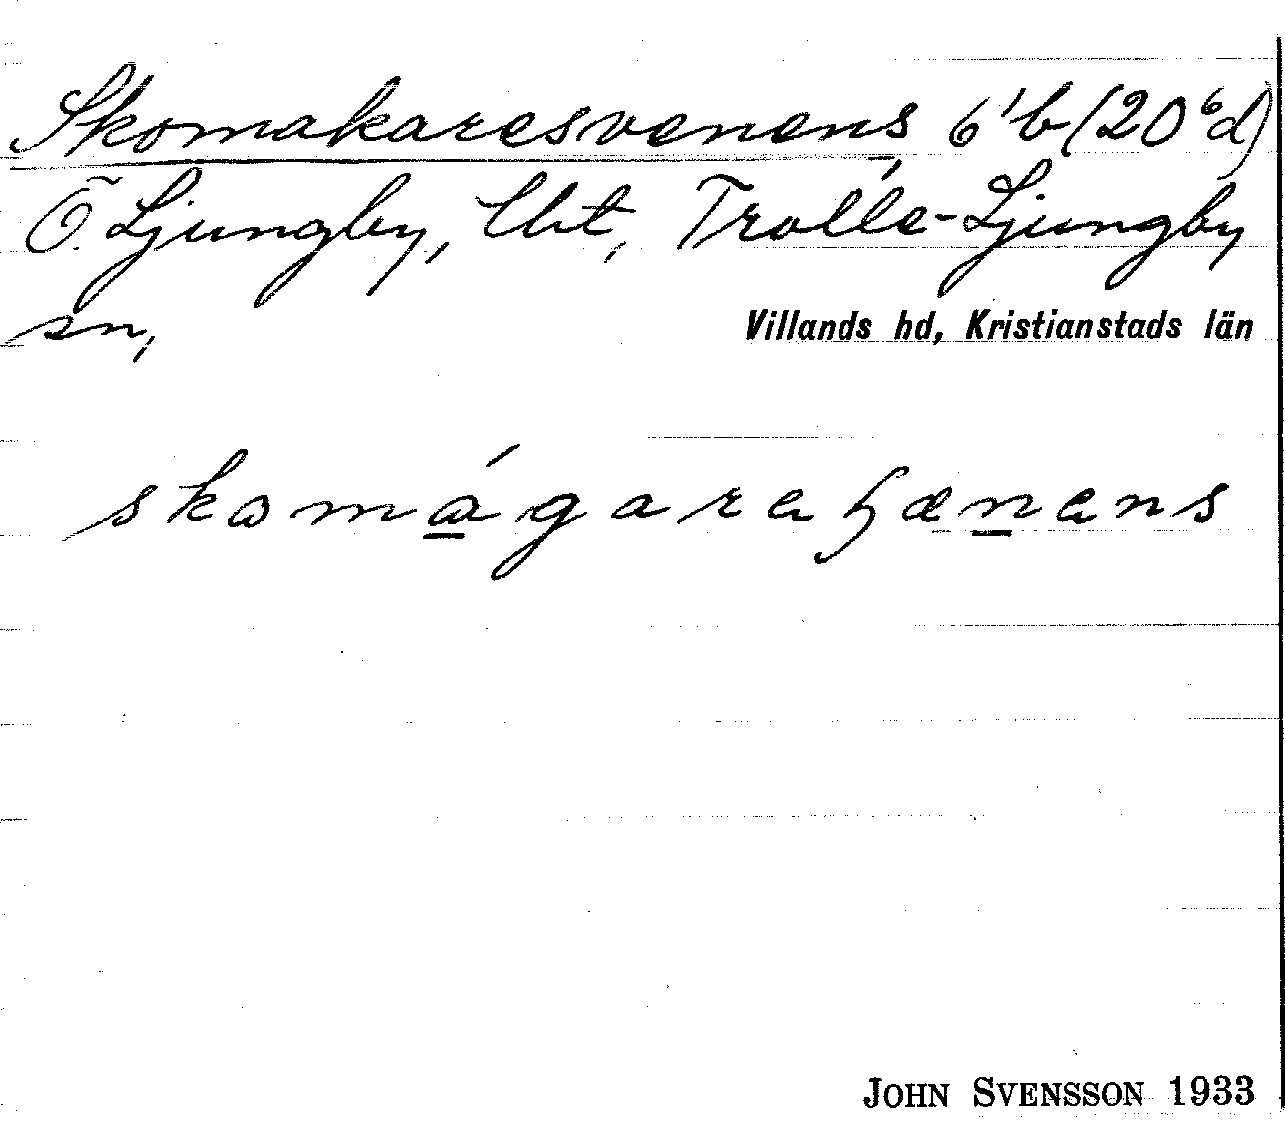 Skomakaresvenens, 6¹b (20⁶d)
Ö. Ljungby, Trolle-Ljungby
sn, Villands hd, Kristianstads län
skomágare hænens
JOHN SVENSSON 1933